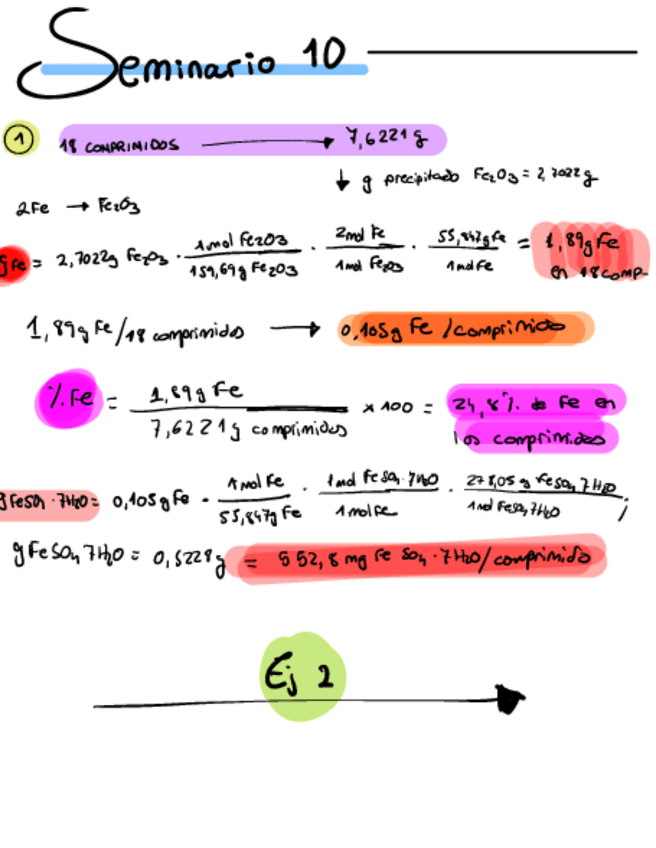 Seminario 10
1 18 COMPRIMIDOS → 7,6221 g
↓ g precipitado Fe2O3 = 2,7022 g
2Fe → Fe2O3
gFe = 2,7022g Fe2O3 · 1mol Fe2O3 / 159,69g Fe2O3 · 2mol Fe / 1mol Fe2O3 · 55,847gFe / 1molFe = 1,89gFe
en 18comp-
1,89g Fe/18 comprimidos → 0,105g Fe /comprimido
%Fe = 1,89g Fe / 7,6221g comprimidos × 100 = 24,8% de Fe en
los comprimidos
gFeSO4·7H2O = 0,105gFe · 1mol Fe / 55,847g Fe · 1mol FeSO4·7H2O / 1molFe · 278,05 g FeSO4 7H2O / 1mol FeSO4 7H2O ;
gFeSO4 7H2O = 0,5228g = 552,8 mg Fe SO4·7H2O/comprimido
Ej 2